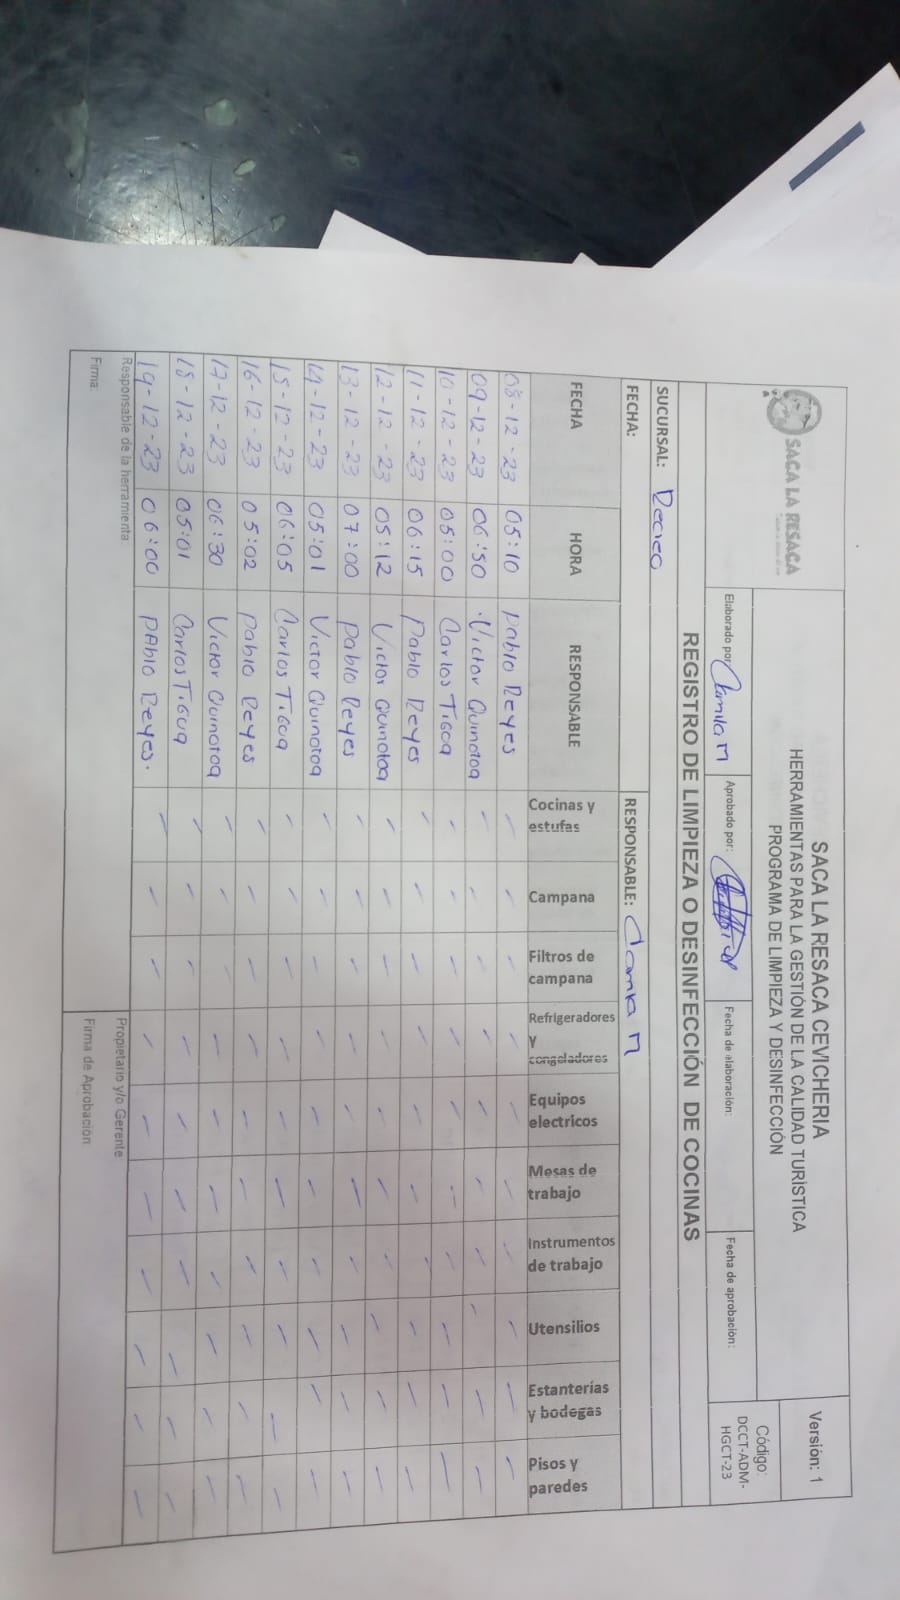 SACA LA RESACA
SACA LA RESACA CEVICHERIA
HERRAMIENTAS PARA LA GESTIÓN DE LA CALIDAD TURÍSTICA
PROGRAMA DE LIMPIEZA Y DESINFECCIÓN
Versión: 1
Código:
DCCT-ADM-
HGCT-23
Elaborado por: Camila M
Aprobado por:
Fecha de elaboración:
Fecha de aprobación:
REGISTRO DE LIMPIEZA O DESINFECCIÓN DE COCINAS
SUCURSAL: Recreo
FECHA:
RESPONSABLE: Camila M
FECHA HORA RESPONSABLE Cocinas y estufas Campana Filtros de campana Refrigeradores Y congeladores Equipos electricos Mesas de trabajo Instrumentos de trabajo Utensilios Estanterías y bodegas Pisos y paredes
08-12-23 05:10 Pablo Reyes
09-12-23 06:50 Victor Quinotoa
10-12-23 05:00 Carlos Tigua
11-12-23 06:15 Pablo Reyes
12-12-23 05:12 Victor Quinotoa
13-12-23 07:00 Pablo Reyes
14-12-23 05:01 Victor Quinotoa
15-12-23 06:05 Carlos Tigua
16-12-23 05:02 Pablo Reyes
17-12-23 06:30 Victor Quinotoa
18-12-23 05:01 Carlos Tigua
19-12-23 06:00 PAblo Reyes.
Responsable de la herramienta:
Propietario y/o Gerente
Firma:
Firma de Aprobación